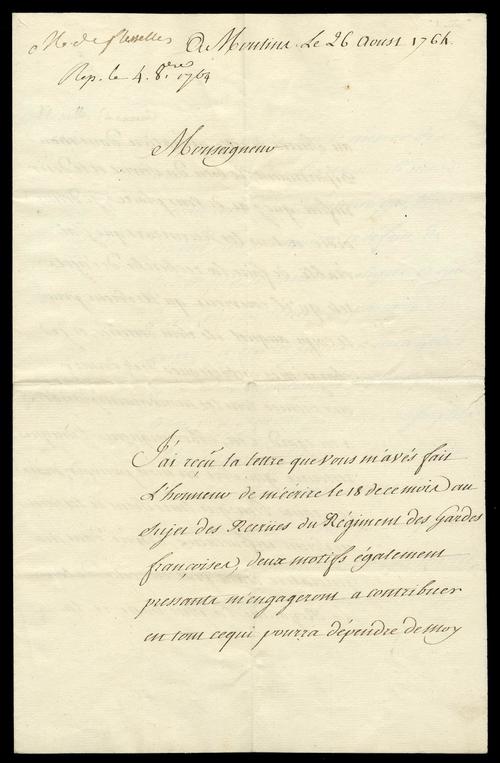 M. de flesselles
A Moulins Le 26 Aoust 1764.
Rep. le 4. 8.bre 1764
Monseigneur
J'ai reçu la lettre que vous m'avés fait
L'honneur de m'écrire le 18 de ce mois au
Sujet des Recrues du Régiment des Gardes
françoises, deux motifs également
pressants m'engageront a contribuer
en tout ce qui pourra dépendre de moy